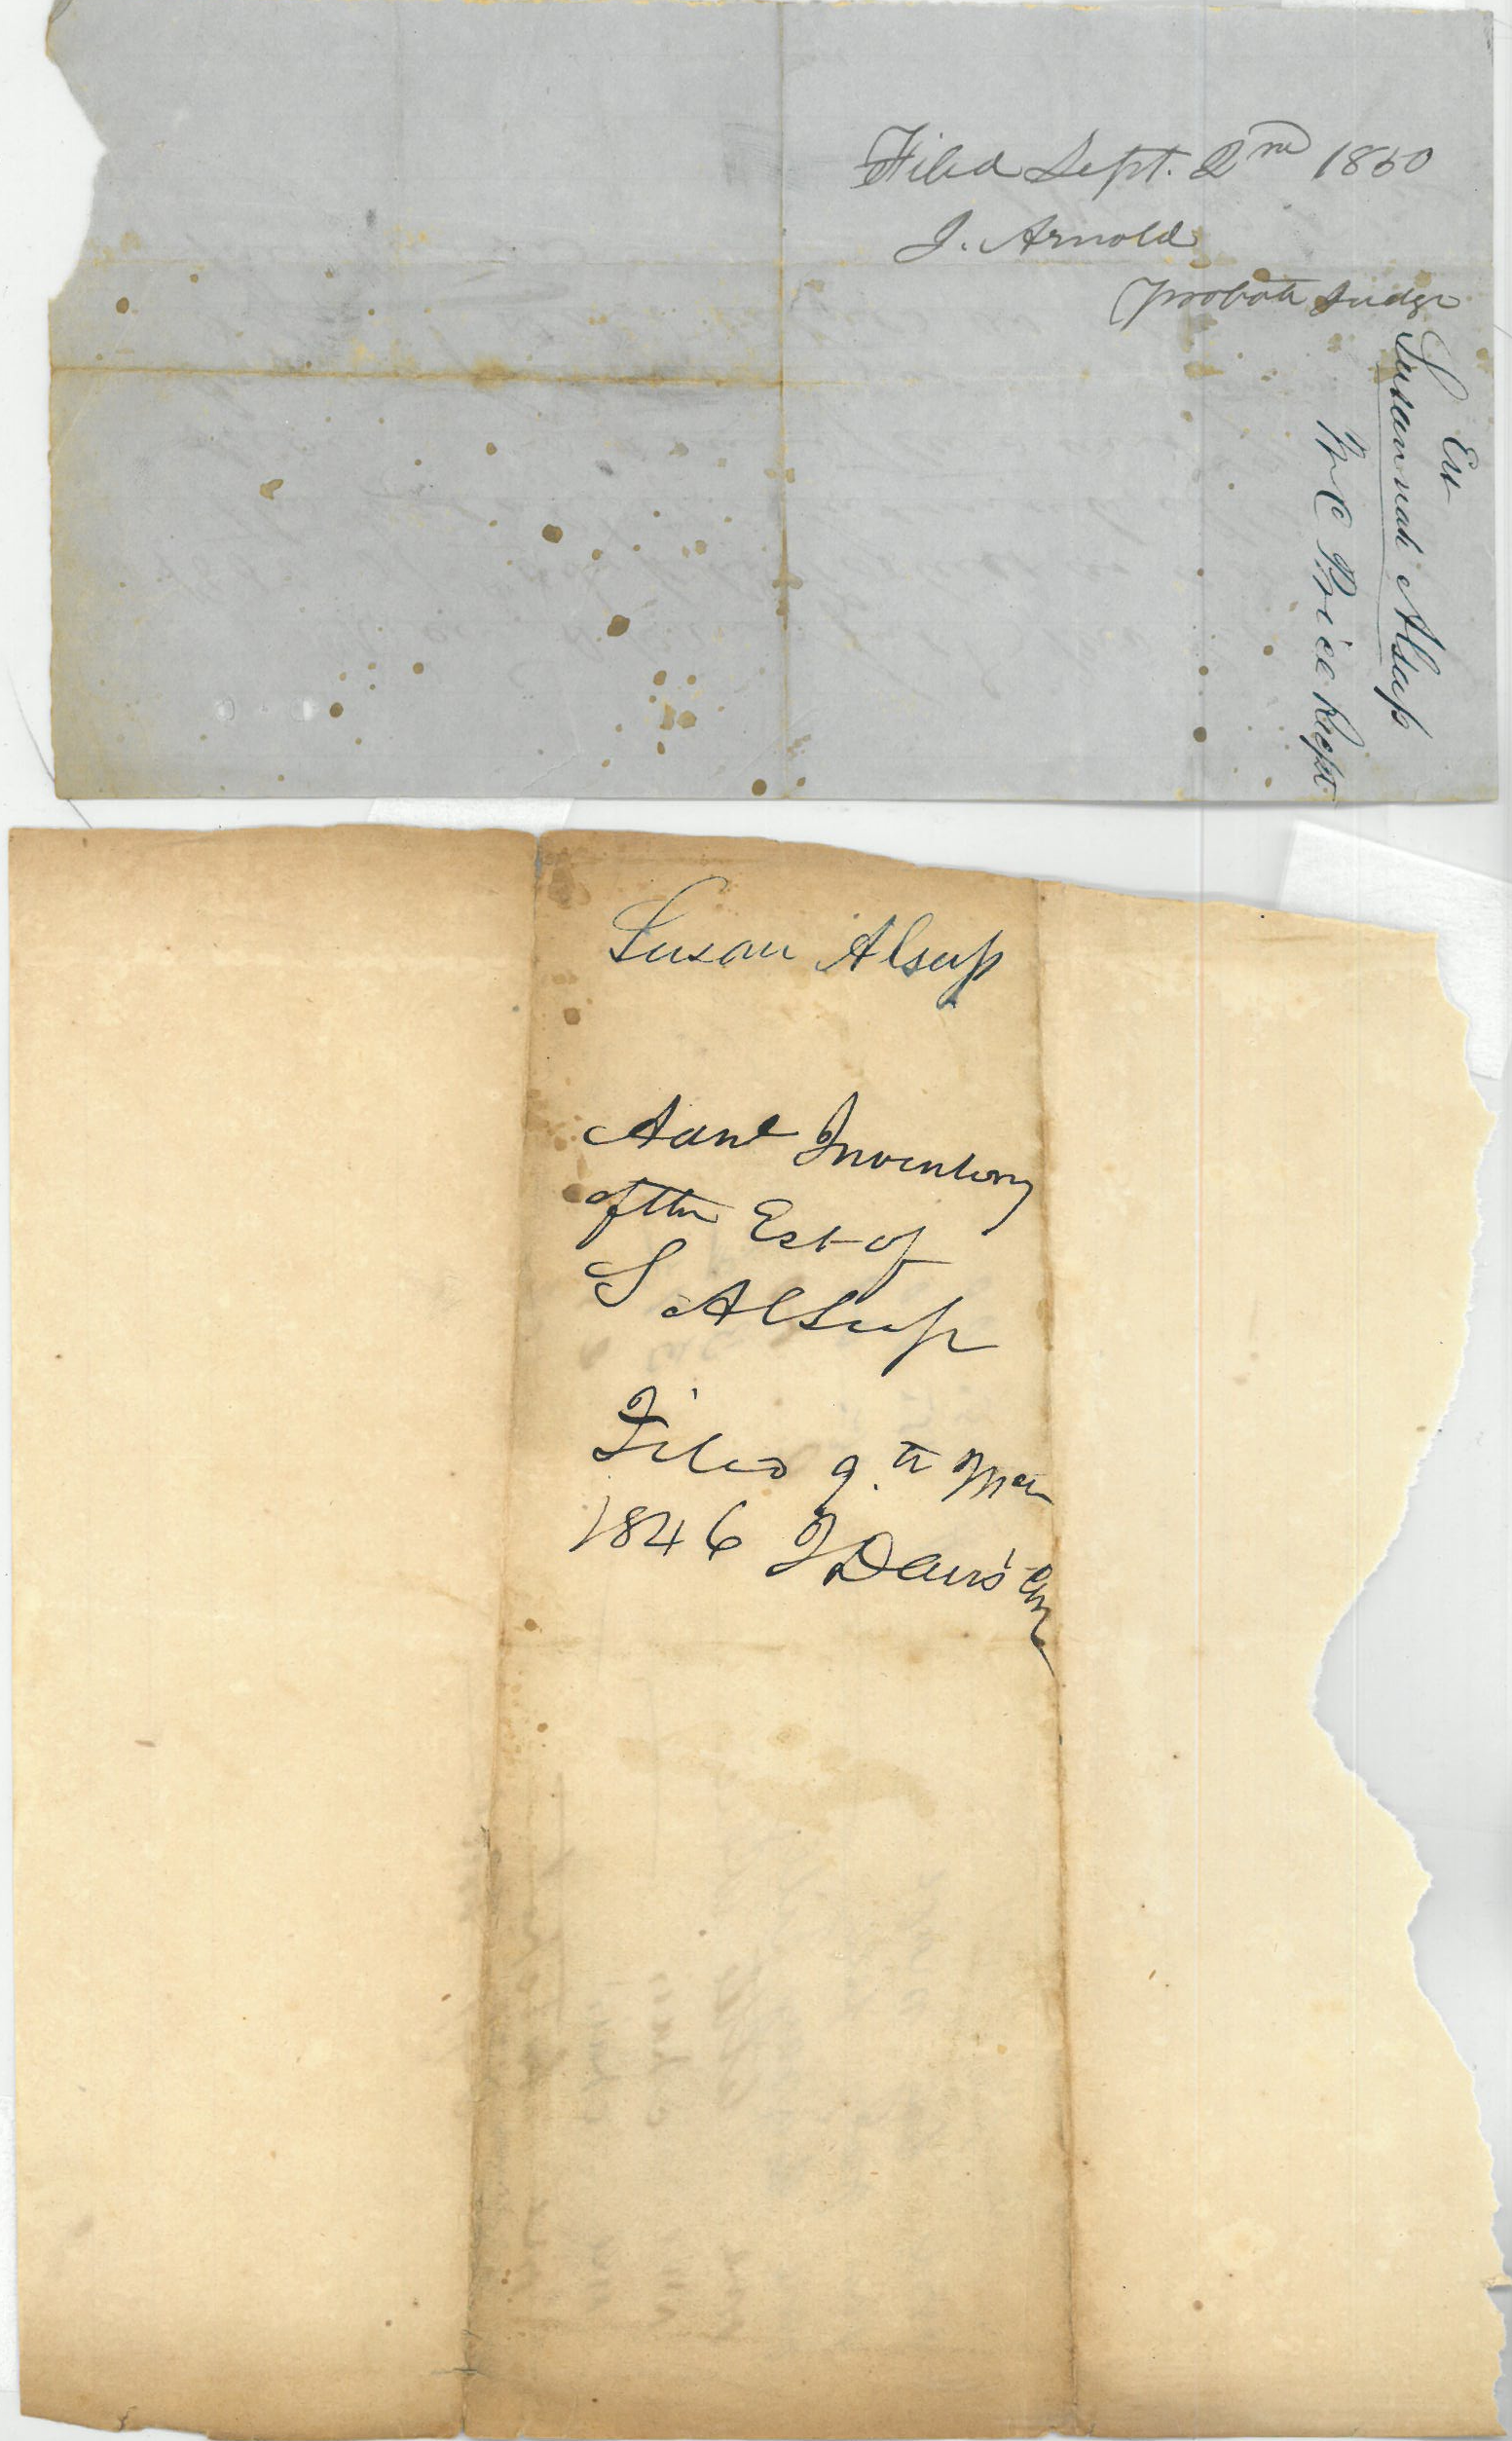 Filed Sept. 2nd 1850
J. Arnold
Probate Judge
Est
Susannah Alsup
W C Price Rcpt.
Susan Alsup
Inventory
of the Est of
S Alsup
Filed 9.th Mar
1846 J Davis